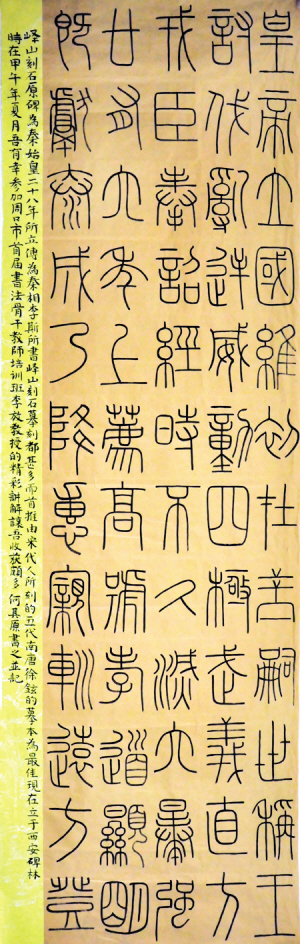 皇帝立國維初在昔嗣世稱王
討伐亂逆威動四極武義直方
戎臣奉詔經時不久滅六暴強
廿有六年上薦高號孝道顯明
既獻泰成乃降惠親巡遠方登
峄山刻石原碑為秦始皇二十八年所立傳為秦相李斯所書峄山刻石摹刻都甚多而首推由宋代人所刻的五代南唐徐鉉的摹本為最佳現在立于西安碑林
時在甲午年夏月吾有幸參加周口市首届書法骨干教師培訓班李放教授的精彩講解讓吾收获頗多何具原書之並記